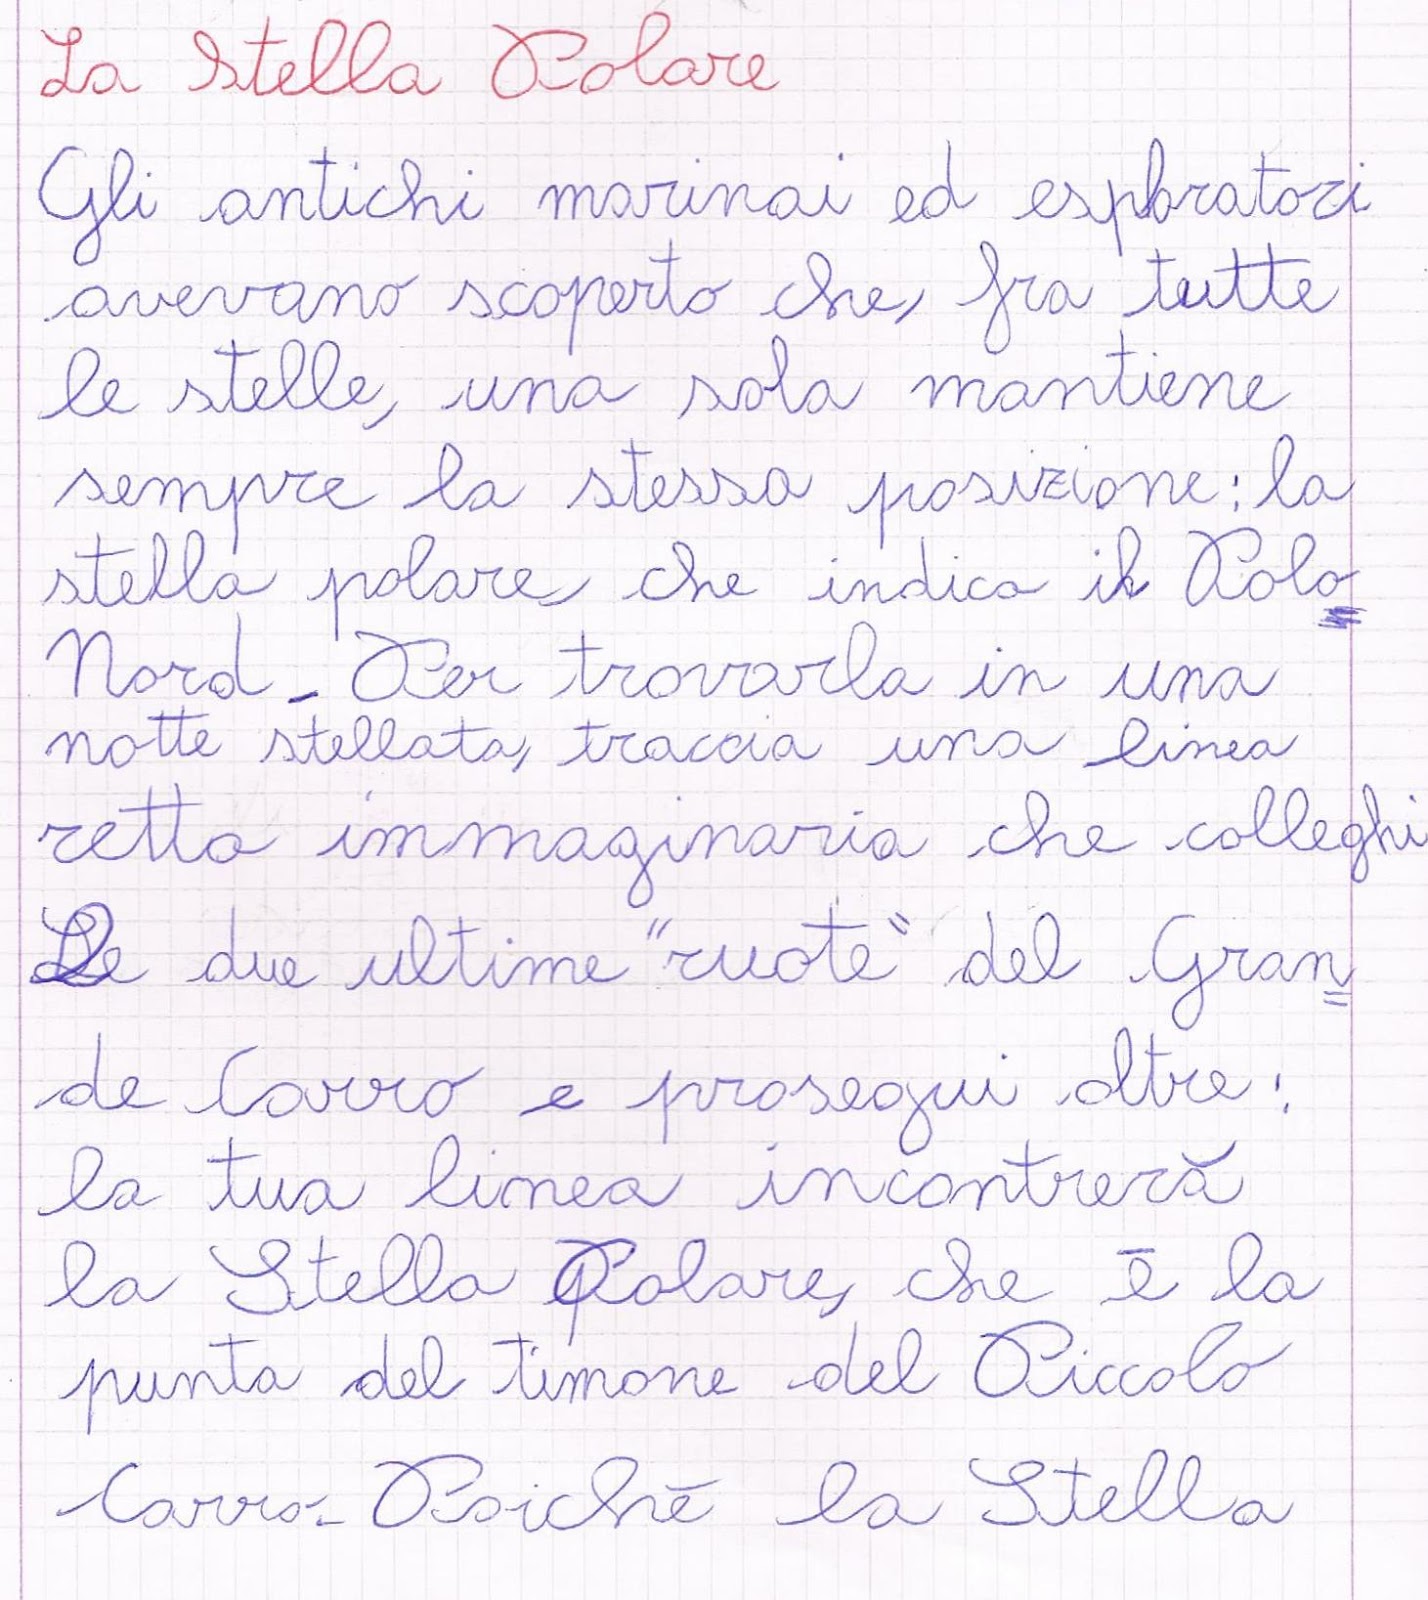 La Stella Polare
Gli antichi marinai ed esploratori
avevano scoperto che, fra tutte
le stelle, una sola mantiene
sempre la stessa posizione: la
stella polare, che indica il Polo
Nord. Per trovarla in una
notte stellata, traccia una linea
retta immaginaria che colleghi
Le due ultime "ruote" del Gran=
de Carro e prosegui oltre:
la tua linea incontrerà
la Stella Polare, che è la
punta del timone del Piccolo
Carro. Poiché la Stella